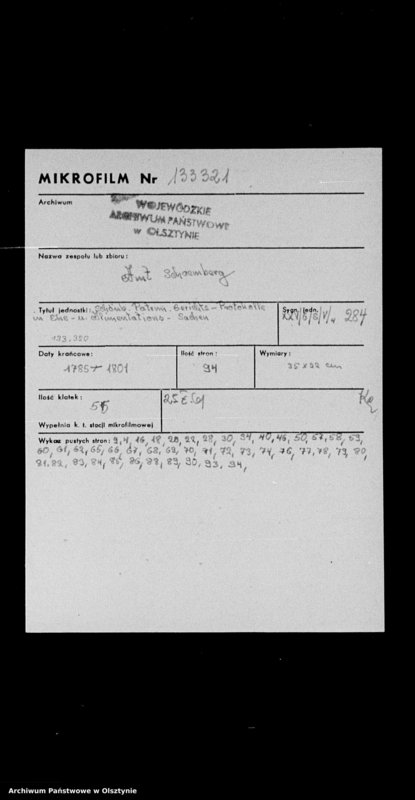 MIKROFILM Nr 133321
Archiwum
WOJEWÓDZKIE
ARCHIWUM PAŃSTWOWE
w OLSZTYNIE
Nazwa zespołu lub zbioru:
Amt Schoenberg
Tytuł jednostki: Schönb. Patrim. Gerichts-Protokolle
in Ehe- u. Alimentations- Sachen
133.320
Sygn. jedn.
284
Daty krańcowe:
1785 - 1801
Ilość stron:
94
Wymiary:
35x22 cm
Ilość klatek:
55
Wypełnia k. t. stacji mikrofilmowej
Wykaz pustych stron: 2, 4, 16, 18, 20, 22, 28, 30, 34, 40, 46, 50, 57, 58, 59,
60, 61, 62, 65, 66, 67, 68, 69, 70, 71, 72, 73, 74, 76, 77, 78, 79, 80,
81, 82, 83, 84, 85, 86, 88, 89, 90, 93, 94,
Archiwum Państwowe w Olsztynie